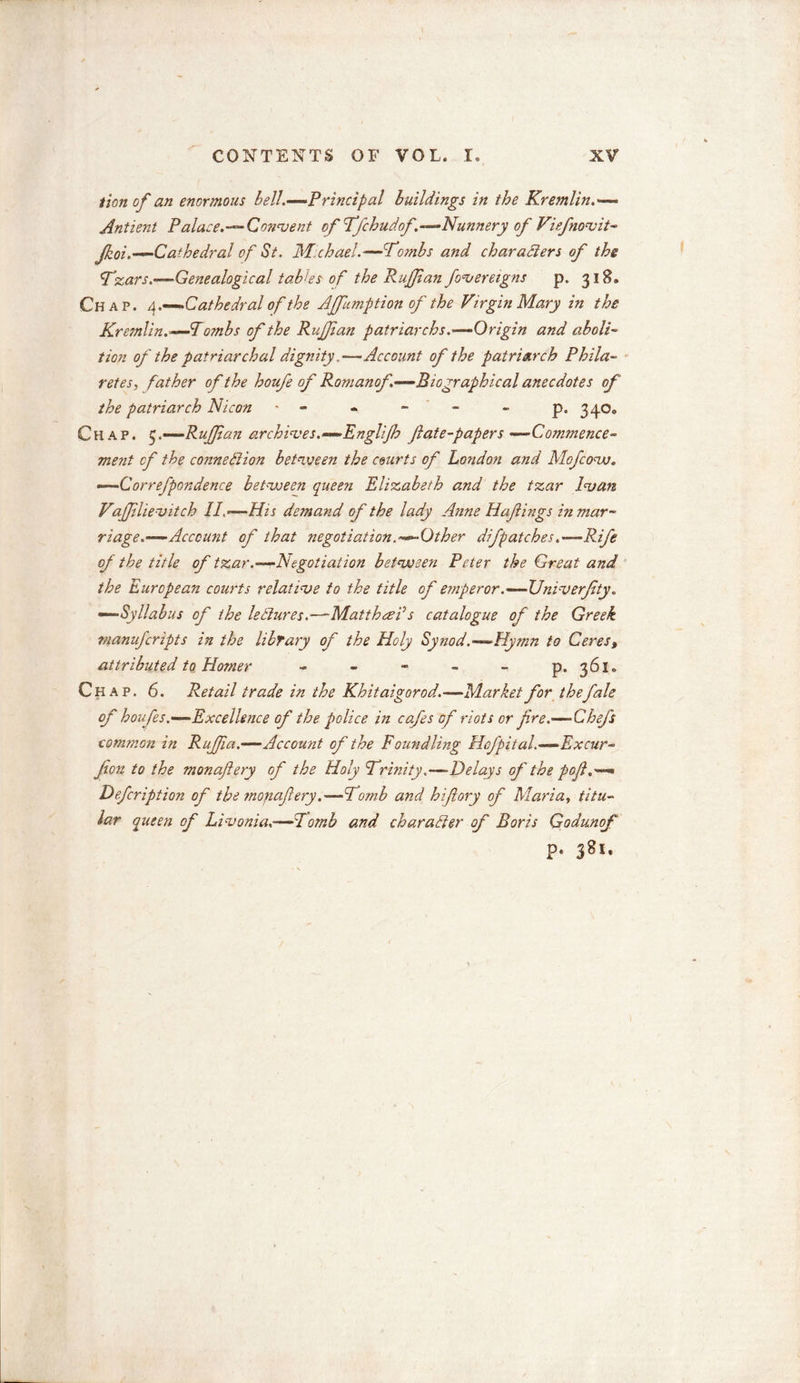 CONTENTS OF VOL. I. XV
tion of an enormous bell.—Principal buildings in the Kremlin.—
Antient Palace.—Convent of Tſchudof.—Nunnery of Vieſnovit-
ſkoi.—Cathedral of St. Michael.—Tombs and characters of the
Tzars.—Genealogical tables of the Ruſſian ſovereigns p. 318.
CHAP. 4.—Cathedral of the Aſſumption of the Virgin Mary in the
Kremlin.—Tombs of the Ruſſian patriarchs.—Origin and aboli-
tion of the patriarchal dignity.—Account of the patriarch Phila-
retes, father of the houſe of Romanof.—Biographical anecdotes of
the patriarch Nicon - - - - - - p. 340.
CHAP. 5.—Ruſſian archives.—Engliſh ſtate-papers—Commence-
ment of the connection between the courts of London and Moſcow.
—Correſpondence between queen Elizabeth and the tzar Ivan
Vaſſilievitch II.—His demand of the lady Anne Haſtings in mar-
riage.—Account of that negotiation.—Other diſpatches.—Riſe
of the title of tzar.—Negotiation between Peter the Great and
the European courts relative to the title of emperor.—Univerſity.
—Syllabus of the lectures.—Matthæi's catalogue of the Greek
manuſcripts in the library of the Holy Synod.—Hymn to Ceres,
attributed to Homer - - - - - p. 361.
CHAP. 6. Retail trade in the Khitaigorod.—Market for the ſale
of houſes.—Excellence of the police in caſes of riots or fire.—Cheſs
common in Ruſſia.—Account of the Foundling Hoſpital.—Excur-
ſion to the monaſtery of the Holy Trinity.—Delays of the poſt.—
Deſcription of the monaſtery.—Tomb and hiſtory of Maria, titu-
lar queen of Livonia.—Tomb and character of Boris Godunof
p. 381.